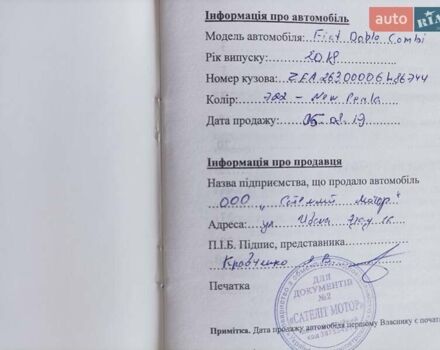 auto RIA
Інформація про автомобіль
Модель автомобіля: Fiat Doblo Combi
Рік випуску: 2018
Номер кузова: ZFA26300006L86744
Колір: 722 - New
Дата продажу: 05.08.19
Інформація про продавця
Назва підприємства, що продало автомобіль
ООО „Сателлит Мотор"
Адреса: ул.
П.І.Б. Підпис, представника
Кравченко А В
Печатка
ДЛЯ
ДОКУМЕНТІВ
№2
«САТЕЛІТ МОТОР»
Примітка. Дата продажу автомобіля першому Власнику є почат